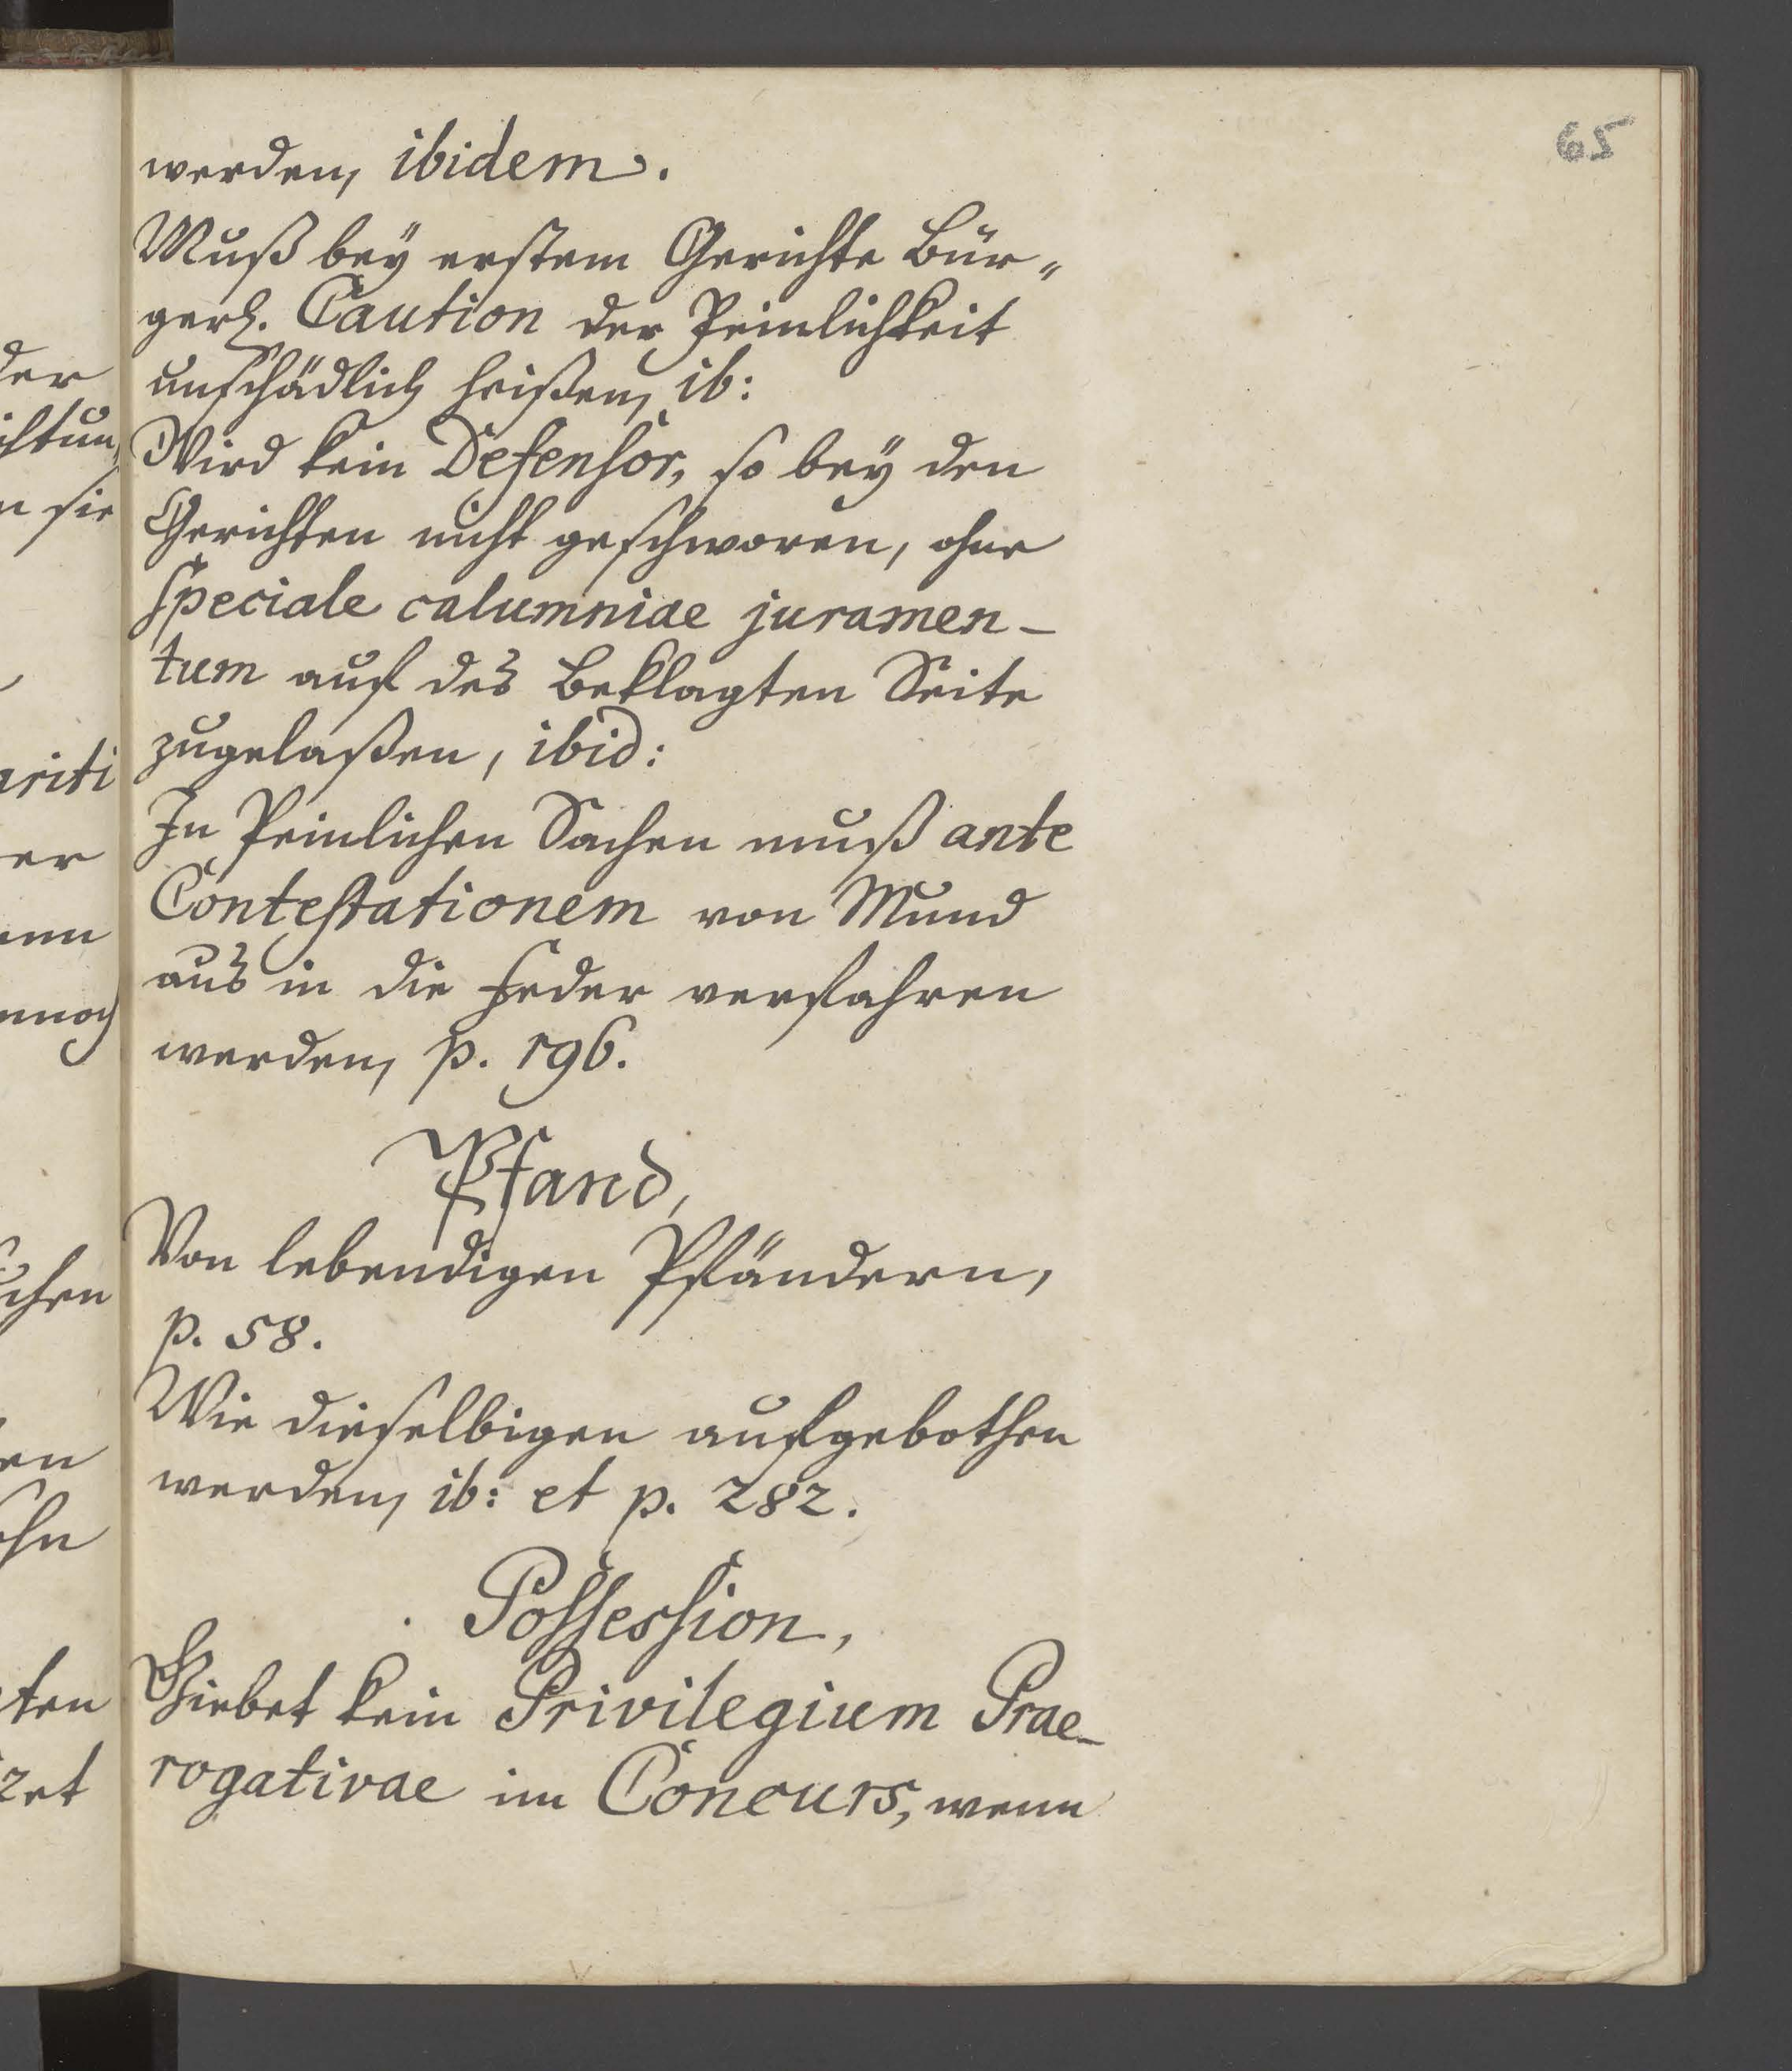 65
werden, ibidem.
Muß bey erstem Gerichte Bür„
gerl. Caution der Peinlichkeit
unschädlich heißen, ib:
Wird kein Defensor, so bey den
Gerichten nicht geschworen, ohne
speciale calumniae juramen-
tum auf des Beklagten Seite
zugelaßen, ibid:
In Peinlichen Sachen muß ante
Contestationem von Mund
aus in die Feder verfahren
werden, p. 196.
Pfand,
Von lebendigen Pfändern,
p. 58.
Wie dieselbigen aufgebothen
werden, ib: et p. 282.
Possession,
Giebet kein Privilegium Prae-
rogativae im Concurs, wenn